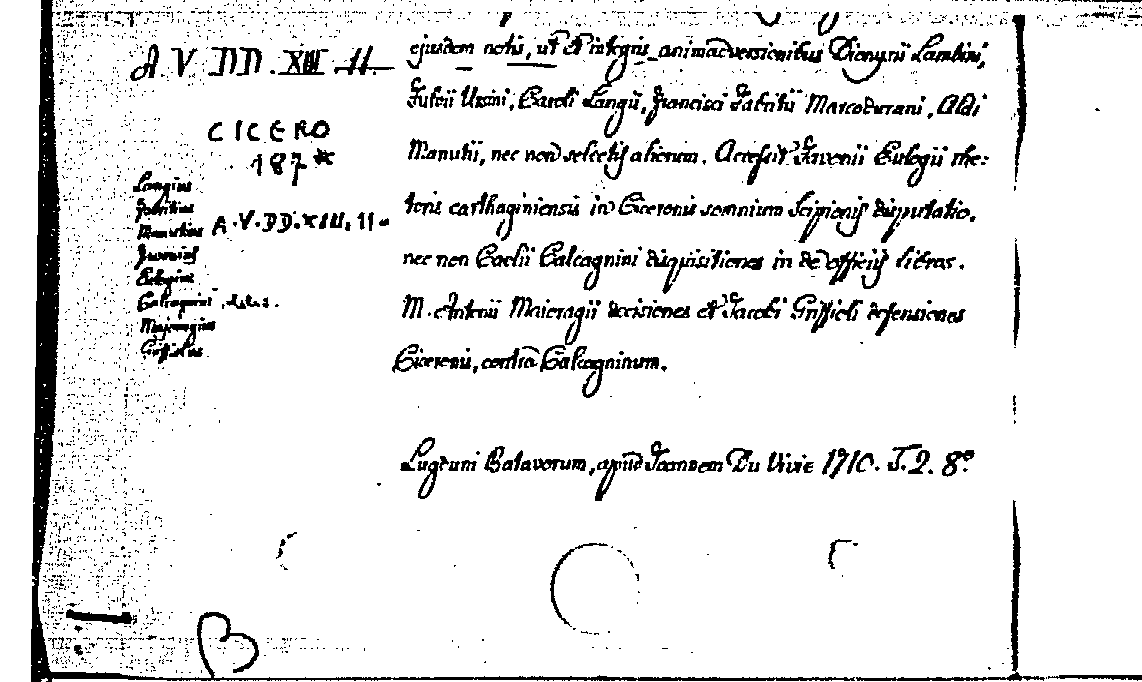 A V DD. XIII 11.
CICERO
187*
Langius
Fabritius
Manutius A.V.DD.XIII.11-
Juvenius
Eulogius
Calcagnini
Majoragius
Griffolus
ejusdem notis, ut et integris animadversionibus Dionysii Lambini,
Fulvii Ursini, Caroli Langii, Francisci Fabritii Marcodurani, Aldi
Manutii, nec non selectis aliorum. Accessit Favonii Eulogii rhe:
toris carthaginiensis in Ciceronis somnium Scipionis disputatio.
nec non Caelii Calcagnini disquisitiones in de officiis libros.
M. Antonii Maioragii decisiones et Jacobi Griffioli defensiones
Ciceronis, contra Calcagninum.
Lugduni Batavorum, apud Joannem Du Vivie 1710. T.2. 8°
B